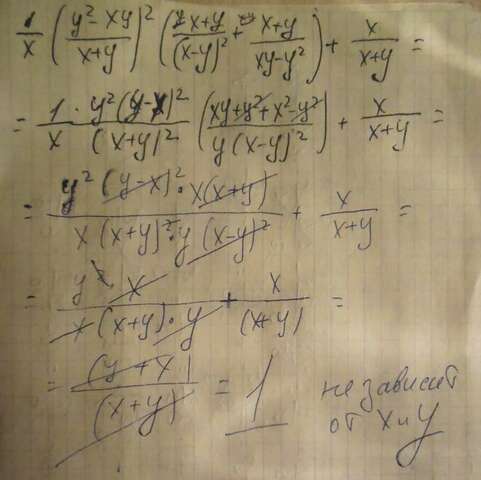 1/x ((y²-xy)/(x+y))² ((x+y)/(x-y)² + (x+y)/(xy-y²)) + x/(x+y) =
= (1·y²(y-x)²)/(x (x+y)²) ((xy+y²+x²-y²)/(y(x-y)²)) + x/(x+y) =
= (y²(y-x)²·x(x+y))/(x(x+y)²·y(x-y)²) + x/(x+y) =
= (y² x)/(x(x+y)·y) + x/(x+y) =
= (y+x)/(x+y) = 1 не зависит
от x и y